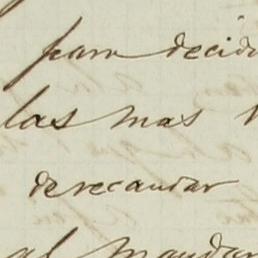 para decid
las mas
de recaudar
al mandar